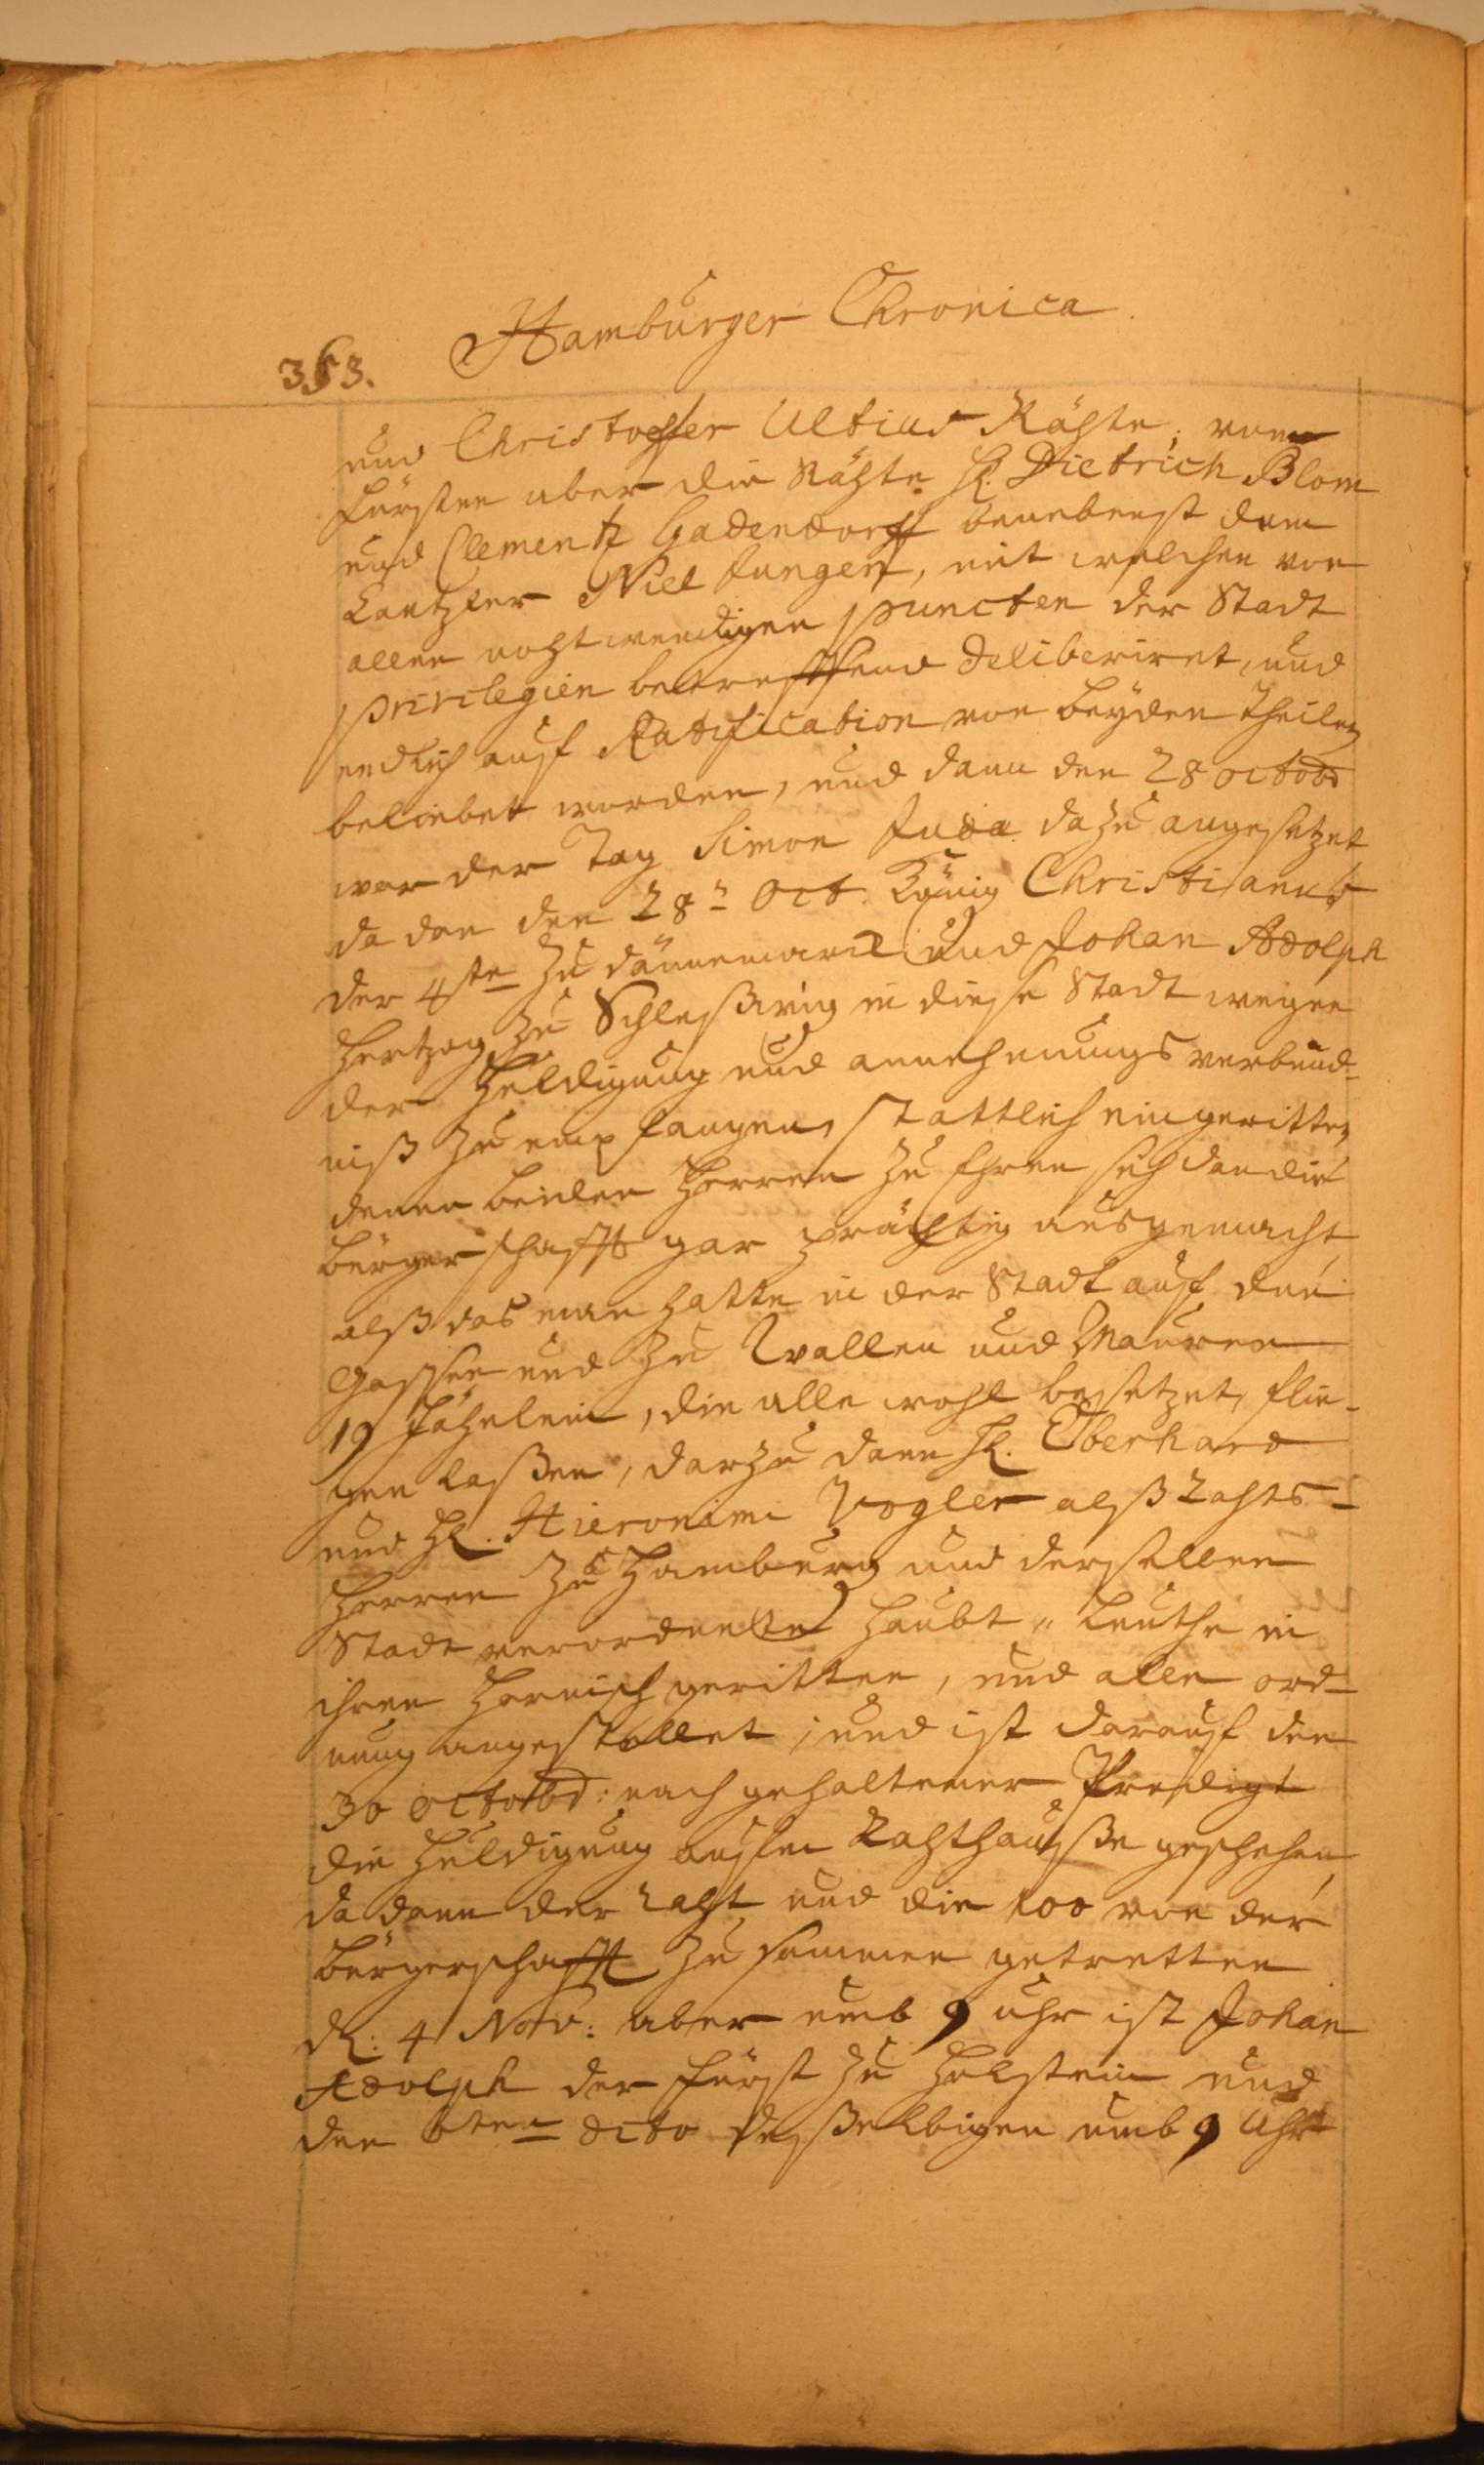 Hamburger Chronica.
353.
und Christoffer Ultius Rähte, vom
Fürsten aber die Rähte H. Dietrich Blom
und Clementz Gadendorff benebenst dem
Cantzler Niel Jungen, mit welchen von
allen nohtwendigen puncten der Stadt
privilegien betreffend deliberiret, und
endlich auf Ratification von beyden theilen
beliebet worden, und dann den 28 octobr
war der Tag Simon Juda dazu angesetzet
da dan den 28ᵗ Oct. König Christianus
der 4te zu Dännemarck und Johan Adolph
Hertzog zu Schleßwig in diese Stadt wegen
der Huldigung und annehmungs verbünd-
niß zu empfangen, stattlich eingeritten
denen beiden Herren zu Ehren sich dan die
bürgerschafft gar prächtig ausgemacht,
alß das man hatte in der Stadt auf den
Gassen und zu Wallen und Mauren
19 Fähnlein, die alle wohl besetzet, flie-
gen laßen, darzu dann H. Eberhard
und H. Hieronimi Vogler alß Rahts-
Herren zu Hamburg und derselben
Stadt verordnete Haubt-leuthe in
ihren Harnisch geritten, und alle ord-
nung angestellet; und ist darauf den
30 octobr: nach gehaltener Predigt
die Huldigung auf'm Rahthauße geschehen,
da dann der Raht und die 100 von der
bürgerschafft zusammen getretten
d: 4 Nov: aber umb 9 uhr ist Johan
Adolph der Fürst zu Holstein und
den 6ten dito deßelbigen umb 9 Uhr